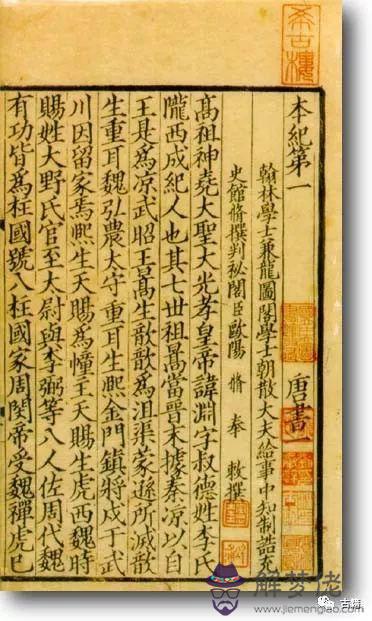 希古樓
本紀第一 唐書一
翰林學士兼龍圖閣學士朝散大夫給事中知制誥充
史館脩撰判祕閣臣歐陽 脩 奉 敕撰
髙祖神堯大聖大光孝皇帝諱淵字叔德姓李氏
隴西成紀人也其七世祖暠當晉末據秦涼以自
王是爲涼武昭王暠生歆歆爲沮渠蒙遜所滅歆
生重耳魏弘農太守重耳生熈金門鎮將戍于武
川因留家焉熈生天賜爲幢主天賜生虎西魏時
賜姓大野氏官至太尉與李弼等八人佐周代魏
有功皆爲柱國號八柱國家周閔帝受魏禪虎已
解梦佬
https://www.jiemenglao.com/